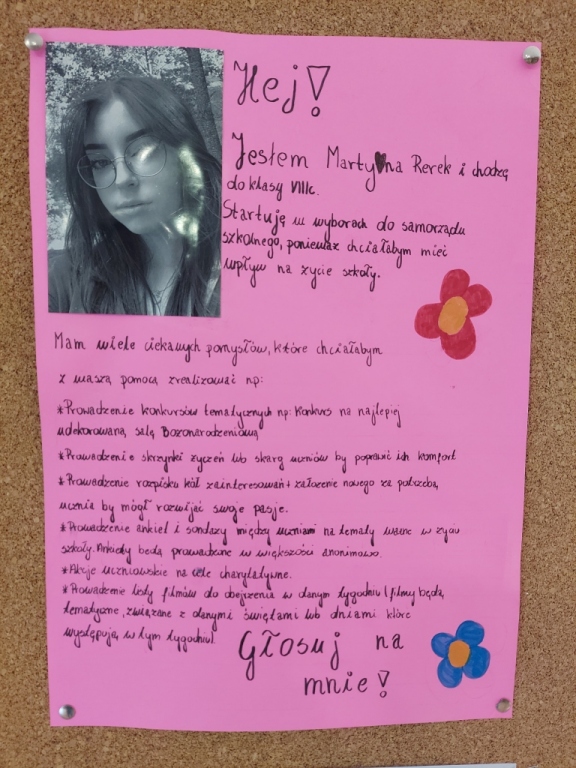 Hej!
Jestem Martyna Rerek i chodzę
do klasy VIIIc.
Startuję w wyborach do samorządu
szkolnego, ponieważ chciałabym mieć
wpływ na życie szkoły.
Mam wiele ciekawych pomysłów, które chciałabym
z waszą pomocą zrealizować np:
*Prowadzenie konkursów tematycznych np: Konkurs na najlepiej
udekorowaną salę Bożonarodzeniową
*Prowadzenie skrzynki życzeń lub skarg uczniów by poprawić ich komfort
*Prowadzenie rozpisku kół zainteresowań + założenie nowego za potrzebą
ucznia by mógł rozwijać swoje pasje.
*Prowadzenie ankiet i sondaży między uczniami na tematy ważne w życiu
szkoły. Ankiety będą prowadzone w większości anonimowo.
*Akcje uczniowskie na cele charytatywne.
*Prowadzenie listy filmów do obejrzenia w danym tygodniu (filmy będą
tematyczne, związane z danymi świętami lub dniami które
występują w tym tygodniu).
Głosuj na
mnie!